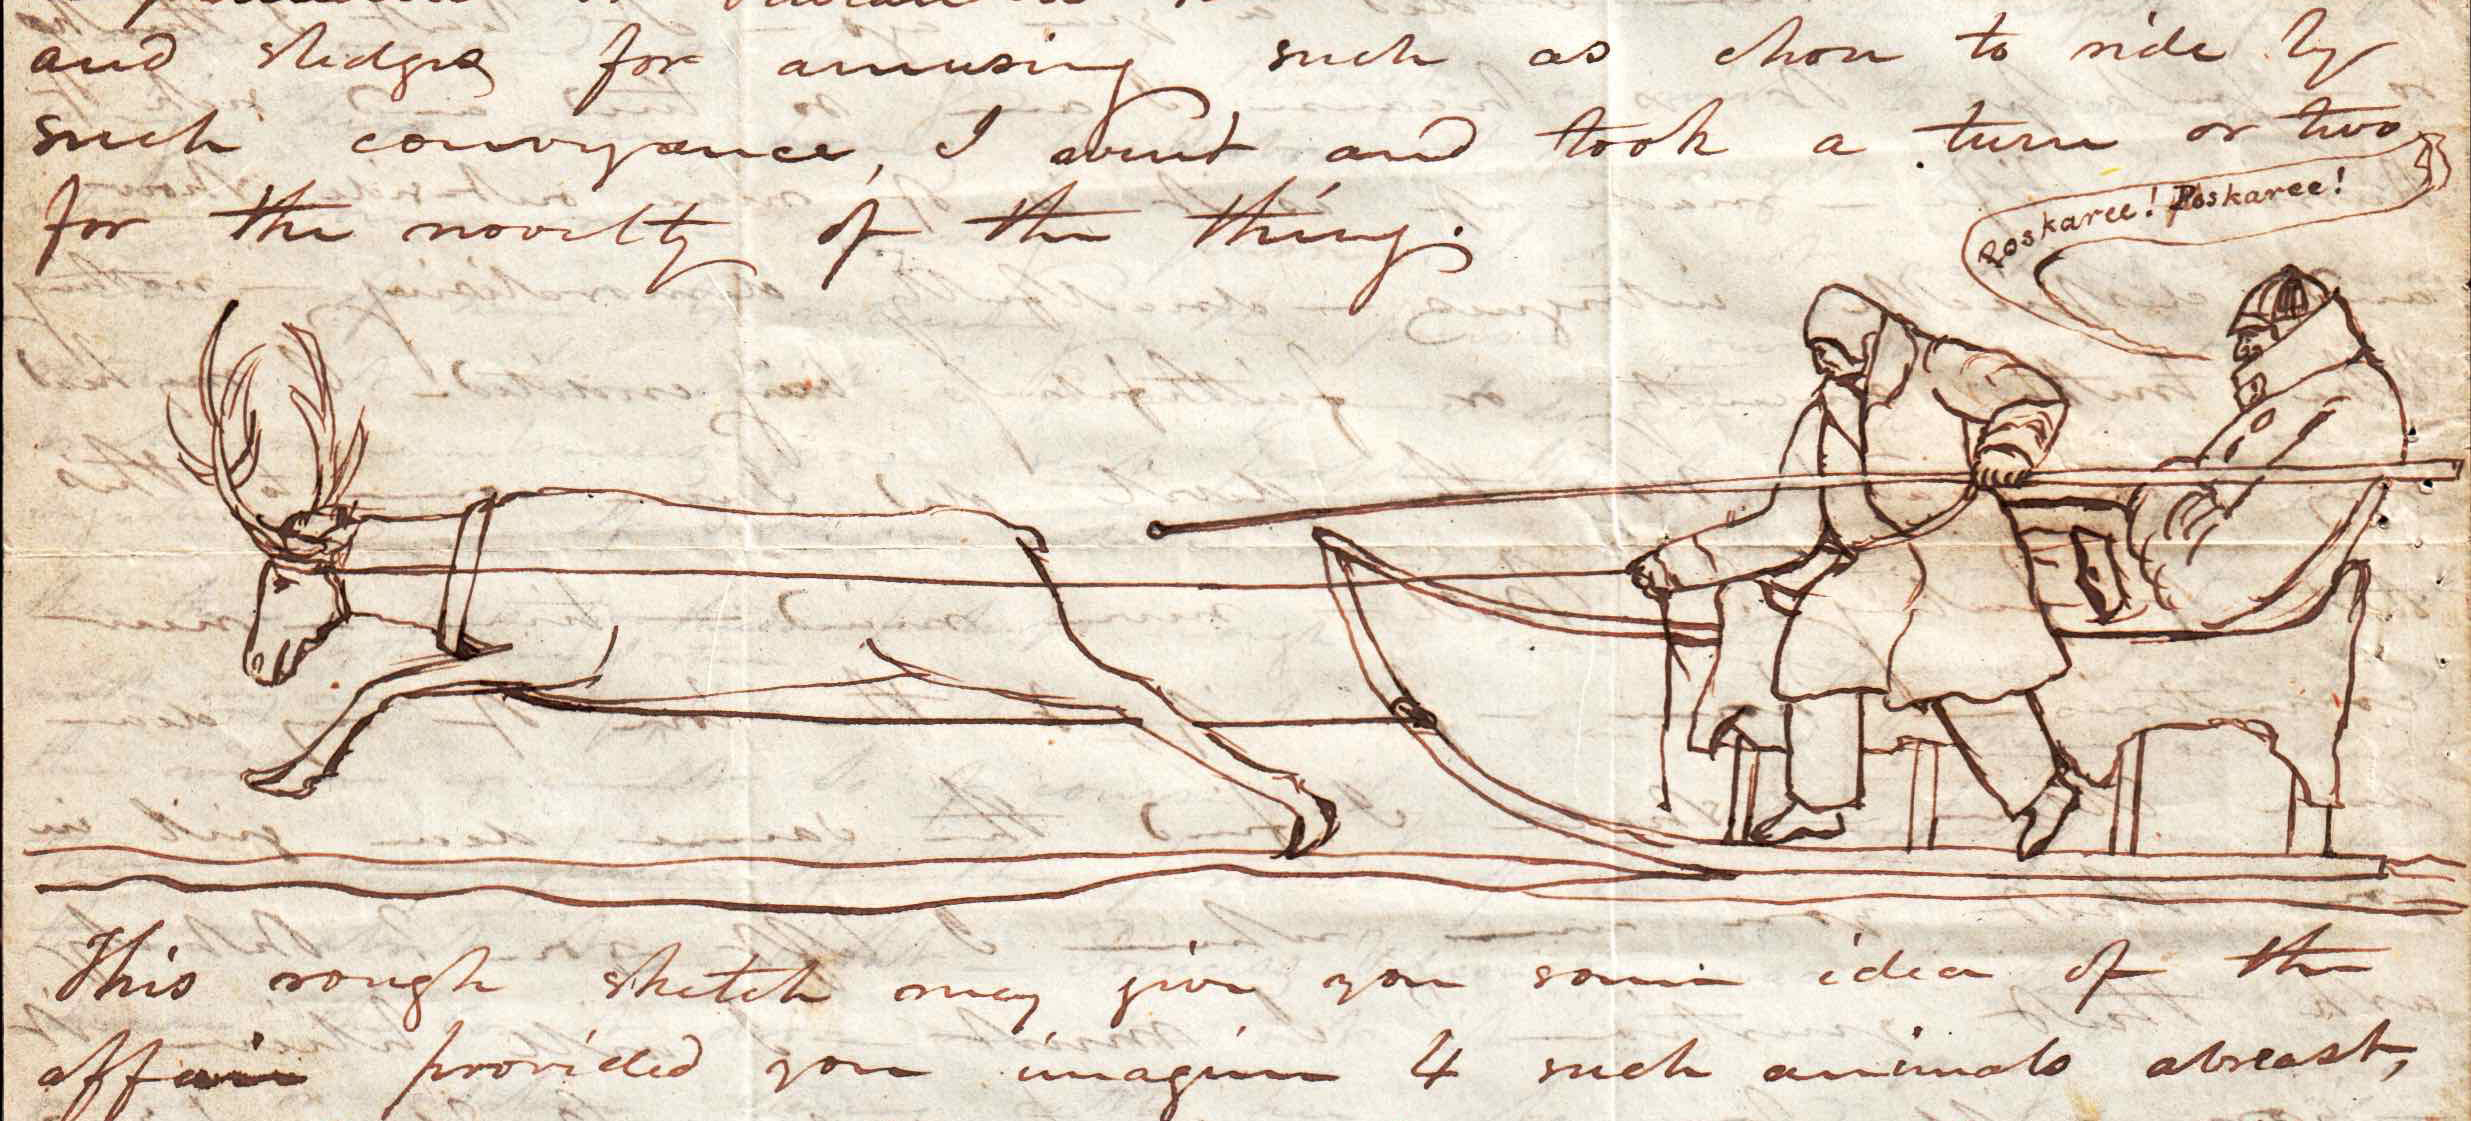 and sledges for amusing such as chose to ride by
such conveyance, I went and took a turn or two
for the novelty of the thing.
Poskaree! Poskaree!
This rough sketch may give you some idea of the
affair provided you imagine 4 such animals abreast,